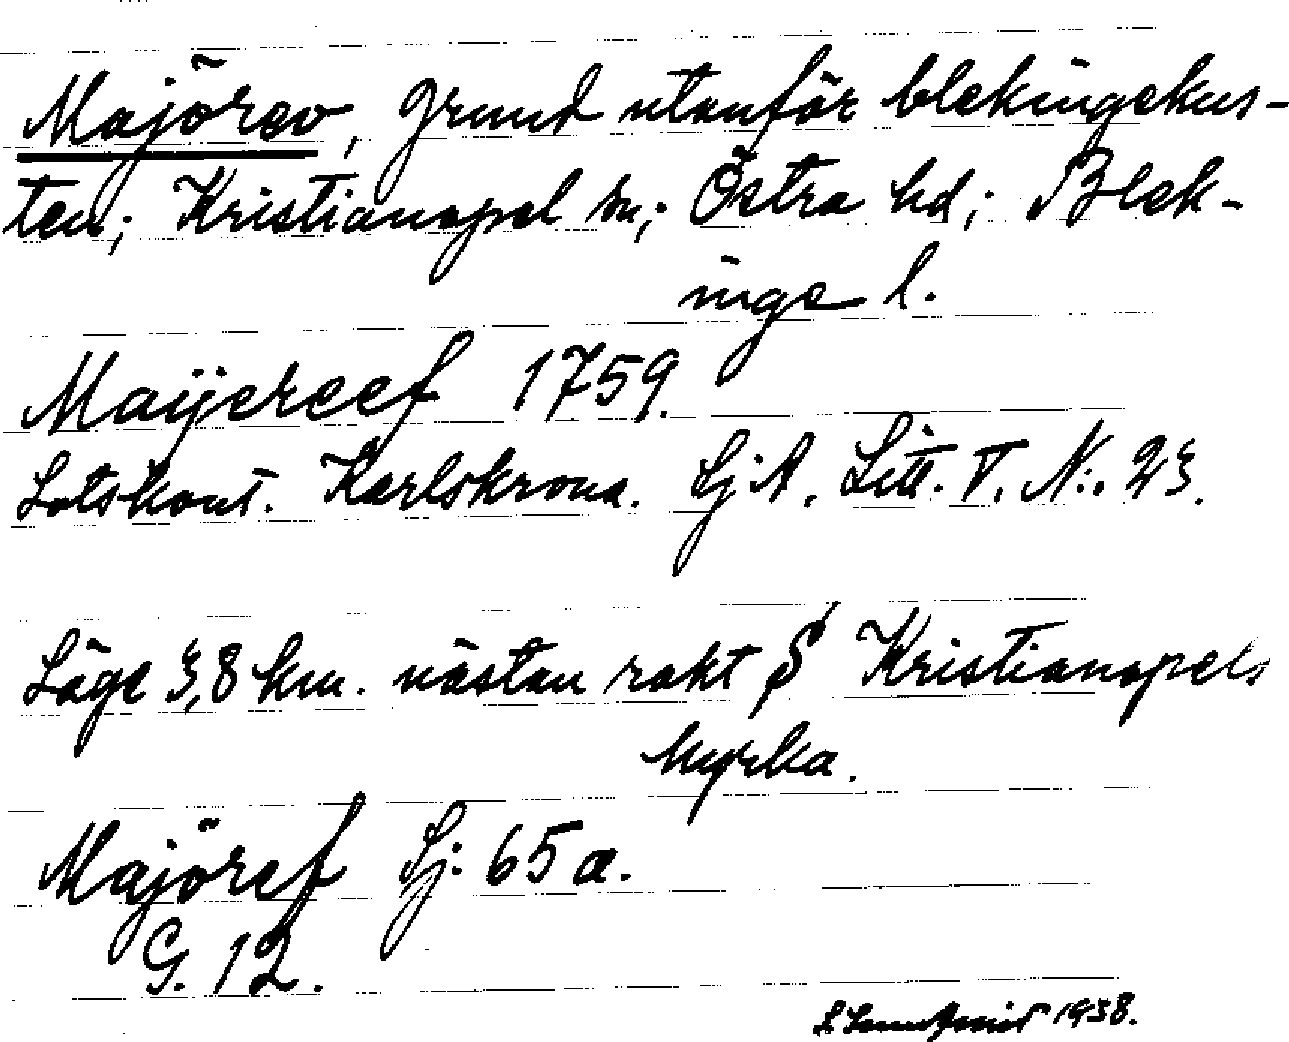 Majörev, grund utanför blekingekus-
ten; Kristianopel sn; Östra hd; Blek-
inge l.
Maijereef 1759.
Lotskont. Karlskrona. Sj:A. Litt. T. N:. 23.
Läge 3,8 km. nästan rakt S Kristianopels
kyrka.
Majöref Sj: 65 a.
G. 12.
1938.